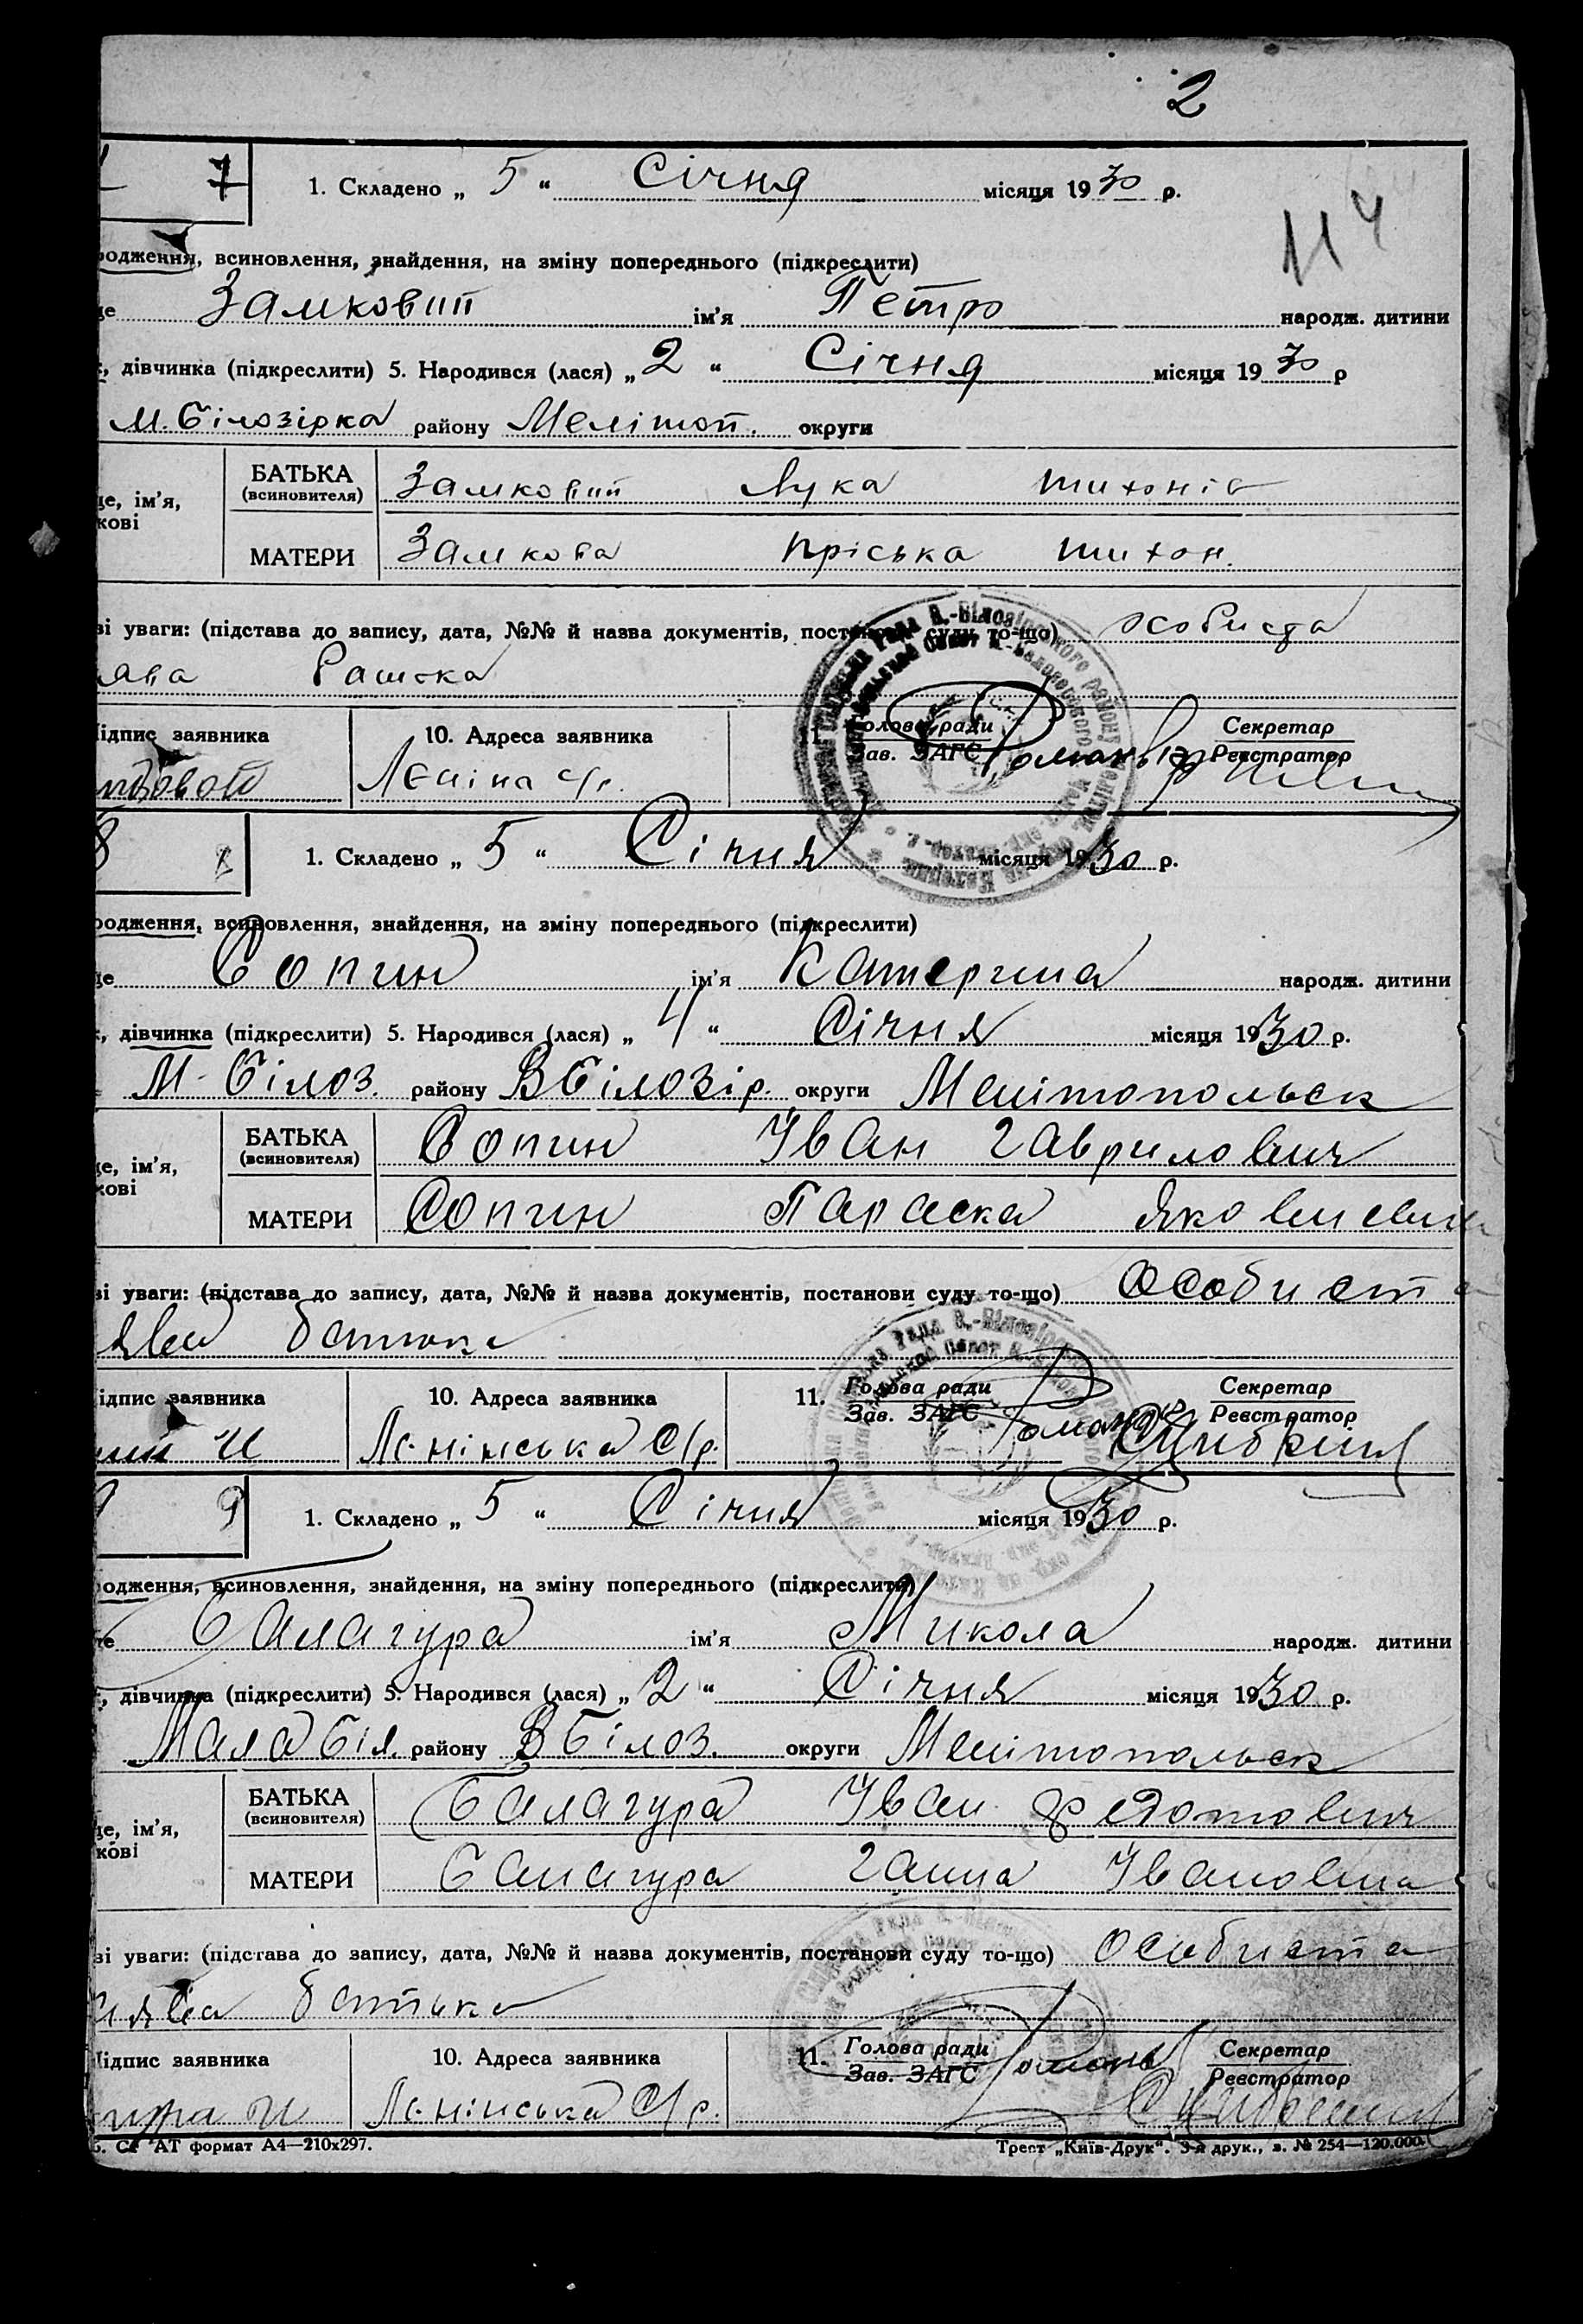 2
7 1. Складено „ 5 “ Січня місяця 1930 р.
114
родження, всиновлення, знайдення, на зміну попереднього (підкреслити)
Замковий ім'я Петро народж. дитини
дівчинка (підкреслити) 5. Народився (лася) „ 2 “ Січня місяця 1930 р
М. Білозірка району Мелітоп. округи
БАТЬКА (всиновителя) Замковий Лука Тихонів
це, ім'я,
кові
МАТЕРИ Замкова Пріська Тихон.
ві уваги: (підстава до запису, дата, №№ й назва документів, постанови суду то-що) особиста
ява
Підпис заявника 10. Адреса заявника 11. Голова ради Секретар
Зав. ЗАГС Реєстратор
Леніна с/р.
8 1. Складено „ 5 “ Січня місяця 1930 р.
родження, всиновлення, знайдення, на зміну попереднього (підкреслити)
Сопин ім'я Катерина народж. дитини
дівчинка (підкреслити) 5. Народився (лася) „ 4 “ Січня місяця 1930 р.
М-Білоз. району ВБілозір. округи Мелітопольск
БАТЬКА (всиновителя) Сопин Іван Гаврилович
це, ім'я,
кові
МАТЕРИ Сопин Параска
ві уваги: (підстава до запису, дата, №№ й назва документів, постанови суду то-що) Особиста
ява батька
Підпис заявника 10. Адреса заявника 11. Голова ради Секретар
Зав. ЗАГС Реєстратор
Ленінська С/р.
9 9 1. Складено „ 5 “ Січня місяця 1930 р.
родження, всиновлення, знайдення, на зміну попереднього (підкреслити)
Балагура ім'я Микола народж. дитини
дівчинка (підкреслити) 5. Народився (лася) „ 2 “ Січня місяця 1930 р.
Мала Біл. району ВБілоз. округи Мелітопольск
БАТЬКА (всиновителя) Балагура Іван Федотович
це, ім'я,
кові
МАТЕРИ Балагура Ганна Івановна
ві уваги: (підстава до запису, дата, №№ й назва документів, постанови суду то-що) Особиста
заява батька
Підпис заявника 10. Адреса заявника 11. Голова ради Секретар
Зав. ЗАГС Реєстратор
гура И Ленінська С/р.
формат А4—210х297. Трест „Київ-Друк“. 3-я друк., з. № 254—120.000